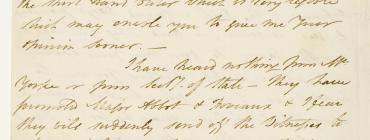 the Short Hand
which may enable you to give me your
opinion sooner. —
I have heard nothing from Mr
Yorke or from Secty. of State — they have
promoted Major Abbot & & I fear
they will suddenly send off the Witnesses to